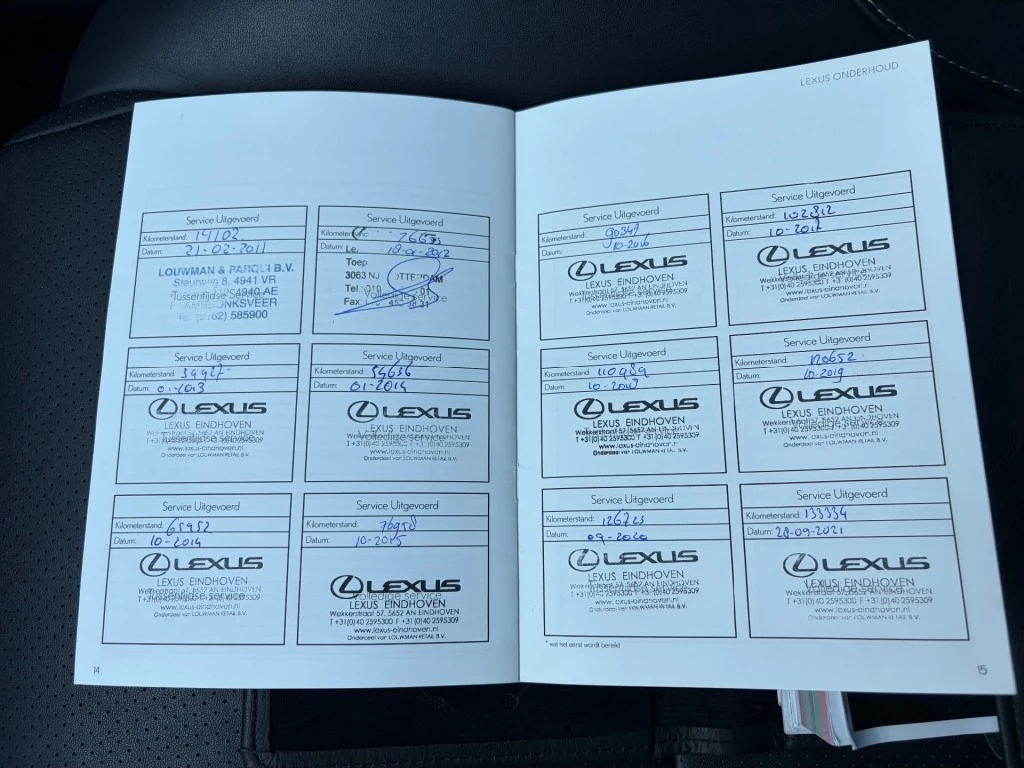 Service Uitgevoerd
Kilometerstand: 14102
Datum: 21-02-2011
LOUWMAN & PARQUI B.V.
Steurweg 8, 4941 VR
Tussentijdse Service
Tel. (0162) 585900
Service Uitgevoerd
Kilometerstand:
Datum: Le
Toep
3063 NJ ROTTERDAM
Tel. 010
Volledige service
Fax
Service Uitgevoerd
Kilometerstand: 39927
Datum: 01-2013
LEXUS
LEXUS EINDHOVEN
Tussentijdse service
www.lexus-eindhoven.nl
Onderdeel van LOUWMAN RETAIL B.V.
Service Uitgevoerd
Kilometerstand: 54636
Datum: 01-2014
LEXUS
LEXUS EINDHOVEN
Volledige service
T +31(0)40 2595300 F +31(0)40 2595309
www.lexus-eindhoven.nl
Onderdeel van LOUWMAN RETAIL B.V.
Service Uitgevoerd
Kilometerstand: 65952
Datum: 10-2014
LEXUS
LEXUS EINDHOVEN
Wekkerstraat 57, 5652 AN EINDHOVEN
Tussentijdse service
www.lexus-eindhoven.nl
Onderdeel van LOUWMAN RETAIL B.V.
Service Uitgevoerd
Kilometerstand: 76958
Datum: 10-2015
LEXUS
Volledige service
LEXUS EINDHOVEN
Wekkerstraat 57, 5652 AN EINDHOVEN
T +31(0)40 2595300 F +31(0)40 2595309
www.lexus-eindhoven.nl
Onderdeel van LOUWMAN RETAIL B.V.
14
LEXUS ONDERHOUD
Service Uitgevoerd
Kilometerstand: 90347
Datum: 10-2016
LEXUS
LEXUS EINDHOVEN
Wekkerstraat 57, 5652 AN EINDHOVEN
T +31(0)40 2595300 F +31(0)40 2595309
www.lexus-eindhoven.nl
Onderdeel van LOUWMAN RETAIL B.V.
Service Uitgevoerd
Kilometerstand: 102812
Datum: 10-2017
LEXUS
LEXUS EINDHOVEN
Wekkerstraat 57, 5652 AN EINDHOVEN
T +31(0)40 2595300 F +31(0)40 2595309
www.lexus-eindhoven.nl
Onderdeel van LOUWMAN RETAIL B.V.
Service Uitgevoerd
Kilometerstand: 110989
Datum: 10-2018
LEXUS
LEXUS EINDHOVEN
Wekkerstraat 57, 5652 AN EINDHOVEN
T +31(0)40 2595300 F +31(0)40 2595309
www.lexus-eindhoven.nl
Onderdeel van LOUWMAN RETAIL B.V.
Service Uitgevoerd
Kilometerstand: 120652
Datum: 10-2019
LEXUS
LEXUS EINDHOVEN
Wekkerstraat 57, 5652 AN EINDHOVEN
T +31(0)40 2595300 F +31(0)40 2595309
www.lexus-eindhoven.nl
Onderdeel van LOUWMAN RETAIL B.V.
Service Uitgevoerd
Kilometerstand: 126723
Datum: 09-2020
LEXUS
LEXUS EINDHOVEN
Wekkerstraat 57, 5652 AN EINDHOVEN
T +31(0)40 2595300 F +31(0)40 2595309
www.lexus-eindhoven.nl
Onderdeel van LOUWMAN RETAIL B.V.
Service Uitgevoerd
Kilometerstand: 133334
Datum: 28-09-2021
LEXUS
LEXUS EINDHOVEN
Wekkerstraat 57, 5652 AN EINDHOVEN
T +31(0)40 2595300 F +31(0)40 2595309
www.lexus-eindhoven.nl
Onderdeel van LOUWMAN RETAIL B.V.
* wat het eerst wordt bereikt
15